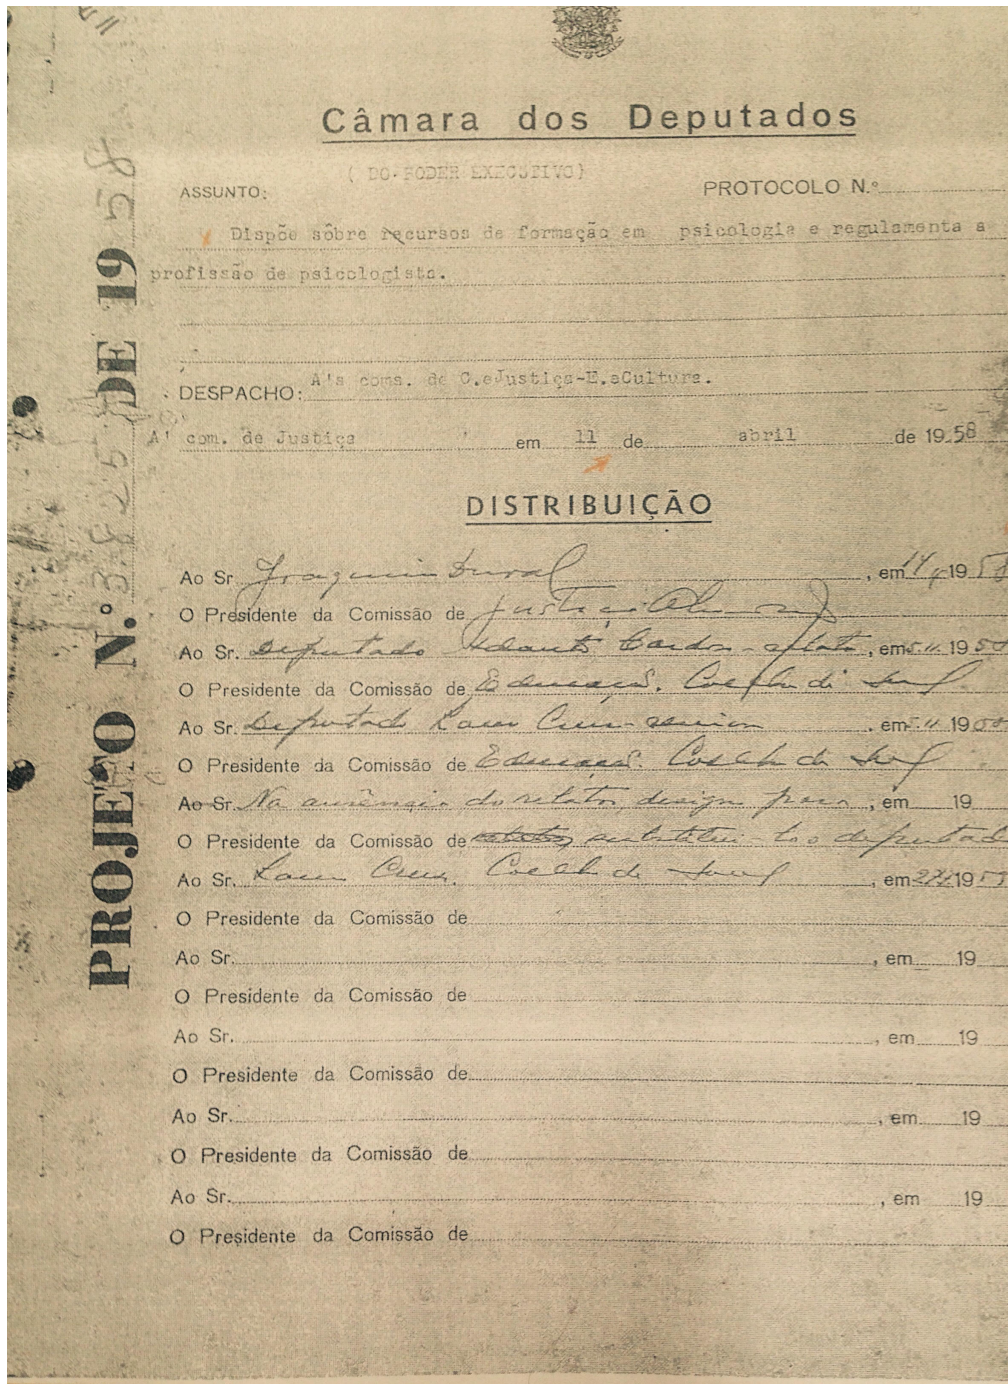 Câmara dos Deputados
( DO PODER EXECUTIVO)
ASSUNTO:
PROTOCOLO N.º
Dispõe sôbre recursos de formação em psicologia e regulamenta a
profissão de psicologista.
DESPACHO: A's coms. de C.eJustiça-E.eCultura.
A' com. de Justiça em 11 de abril de 1958
DISTRIBUIÇÃO
Ao Sr. Joaquim Duval, em 11/4 1958
O Presidente da Comissão de Justiça
Ao Sr. Deputado Adauto Cardoso - relator, em 5.11.1958
O Presidente da Comissão de Educação. Coelho de Souza
Ao Sr. Deputado Lauro Cruz - revisor, em 5.11 1958
O Presidente da Comissão de Educação. Coelho de Souza
Ao Sr. Na ausência do relator, designo para, em 19
O Presidente da Comissão de substitui-lo o deputado
Ao Sr. Lauro Cruz. Coelho de Souza, em 1958
O Presidente da Comissão de
Ao Sr. , em 19
O Presidente da Comissão de
Ao Sr. , em 19
O Presidente da Comissão de
Ao Sr. , em 19
O Presidente da Comissão de
Ao Sr. , em 19
O Presidente da Comissão de
PROJETO N.º 3825 DE 1958